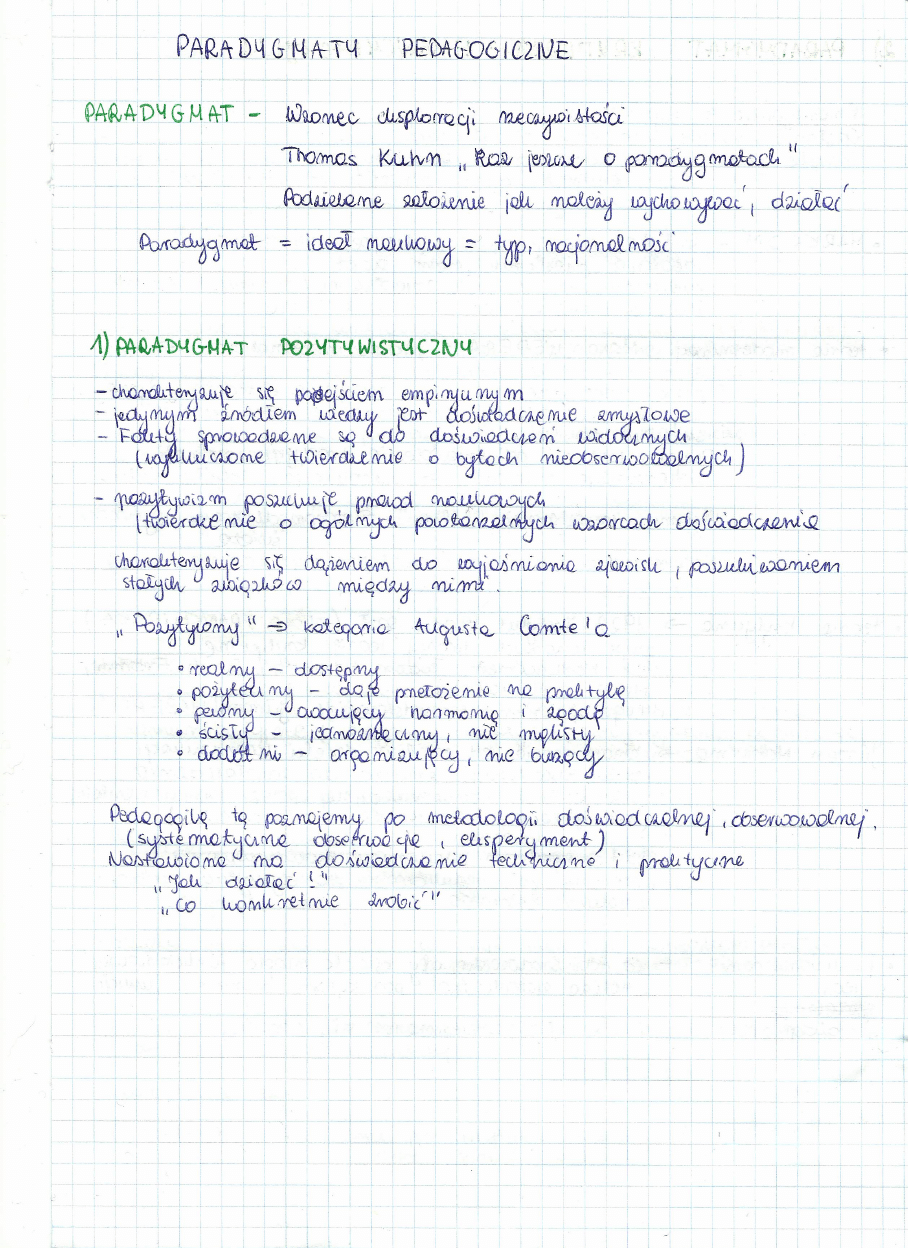 PARADYGMATY PEDAGOGICZNE
PARADYGMAT - Wzorzec eksploracji rzeczywistości
Thomas Kuhn „Raz jeszcze o paradygmatach"
Podzielane założenie jak należy wychowywać, działać
Paradygmat = ideał naukowy = typ, racjonalność
1) PARADYGMAT POZYTYWISTYCZNY
- charakteryzuje się podejściem empirycznym
- jedynym źródłem wiedzy jest doświadczenie zmysłowe
- Fakty sprowadzane są do doświadczeń widocznych
(wykluczone twierdzenie o bytach nieobserwowalnych)
- pozytywizm poszukuje prawd naukowych
(twierdzenie o ogólnych powtarzalnych wzorcach doświadczenia
charakteryzuje się dążeniem do wyjaśniania zjawisk, poszukiwaniem
stałych związków między nimi.
„Pozytywny" → kategoria Augusta Comte'a
• realny - dostępny
• pożyteczny - daje przełożenie na praktykę
• pewny - zwiastujący harmonię i zgodę
• ścisły - jednoznaczny, nie mglisty
• dodatni - organizujący, nie burzący
Pedagogikę tą poznajemy po metodologii doświadczalnej, obserwowalnej.
(systematyczna obserwacja, eksperyment)
Nastawiona na doświadczenie techniczne i praktyczne
„Jak działać!"
„Co konkretnie zrobić"